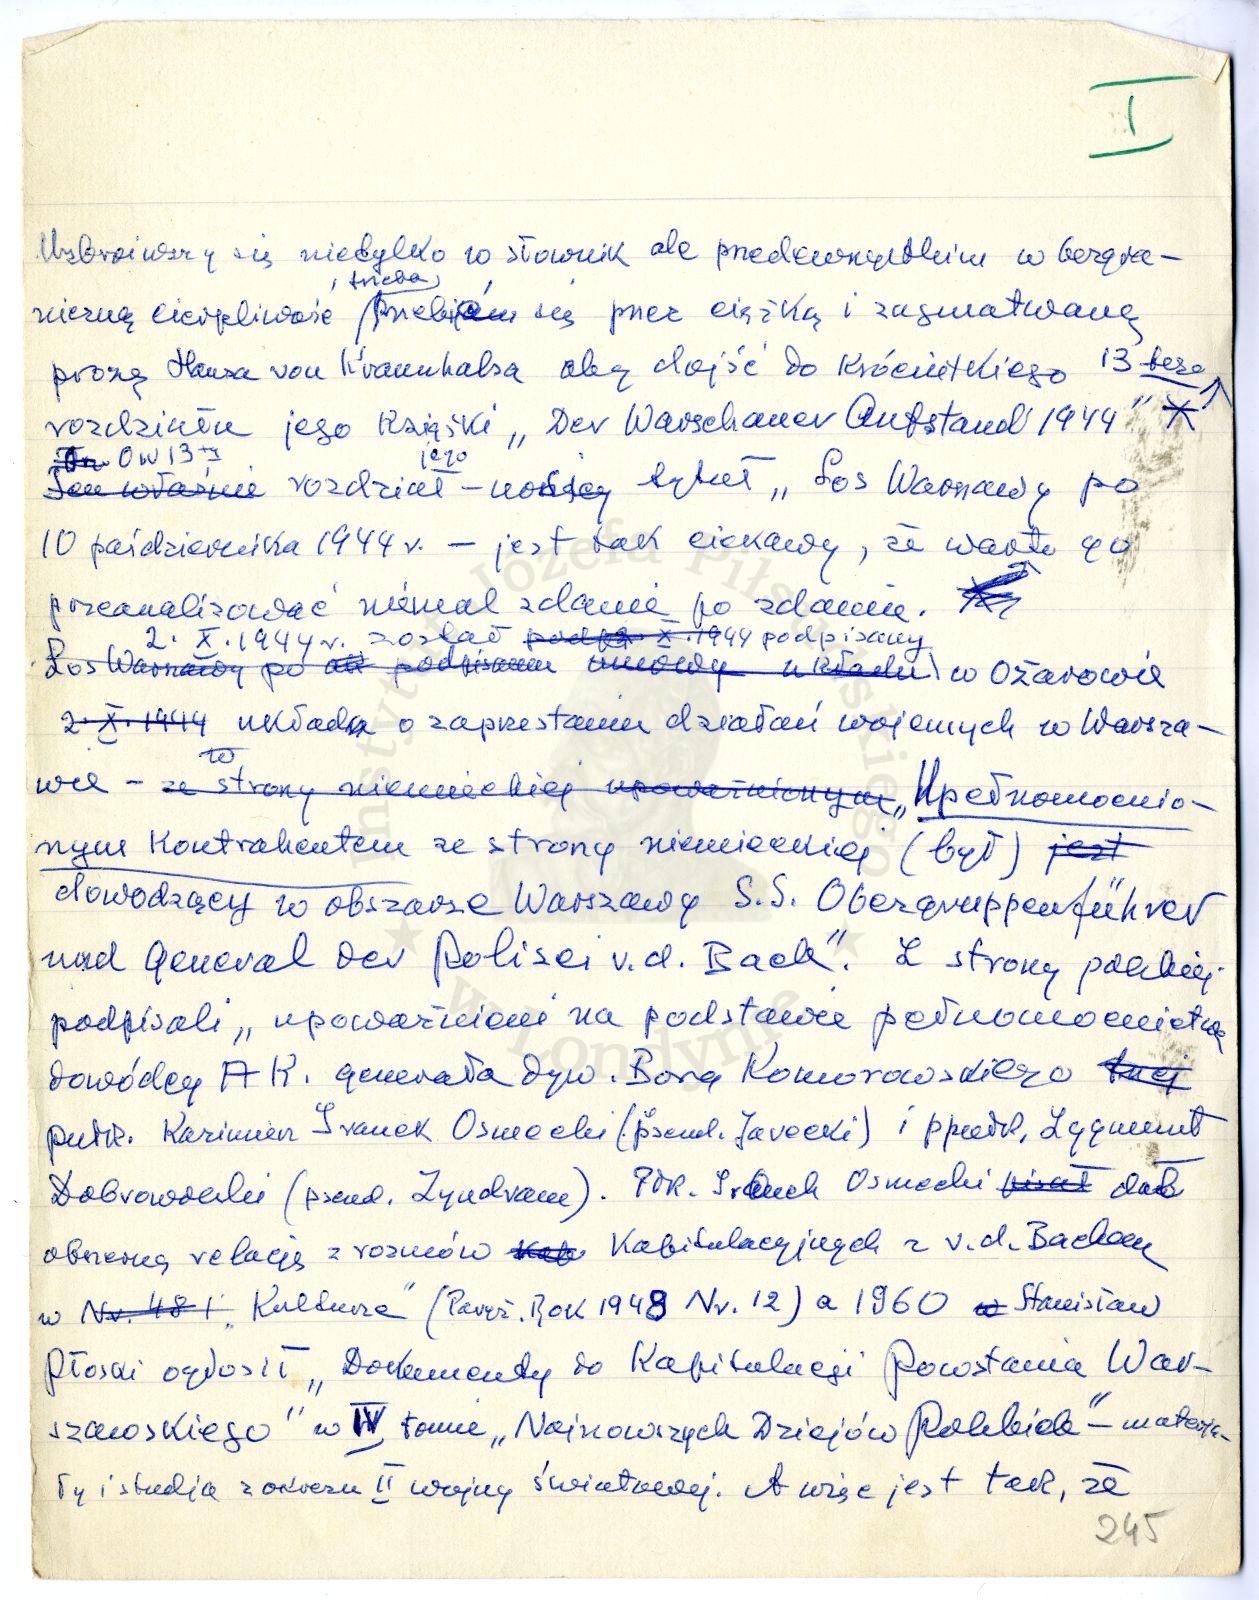 I
Uzbroiwszy się nietylko w słownik ale przedewszystkim w bezgra-
niczną cierpliwość trzeba przebijać się przez ciężką i zagmatwaną
prozę Hansa von Krannhalsa aby dojść do króciutkiego 13
rozdziału jego książki „Der Warschauer Aufstand 1944"
Ów 13ty
Ten właśnie rozdział – noszący jego tytuł „Los Warszawy po
10 października 1944 r. – jest tak ciekawy, że warto go
przeanalizować niemal zdanie po zdaniu.
2. X. 1944 r. został podp. X. 1944 podpisany
Los Warszawy po podpisaniu umowy układu w Ożarowie
2. X. 1944 układ o zaprzestaniu działań wojennych w Warsza-
wie – to ze strony niemieckiej upoważnionym „Upełnomocnio-
nym kontrahentem ze strony niemieckiej (był) jest
dowodzący w obszarze Warszawy S.S. Obergruppenführer
und General der Polizei v.d. Bach". Z strony polskiej
podpisali „upoważnieni na podstawie pełnomocnictwa
dowódcy A K. generała dyw. Bora Komorowskiego
pułk. Kazimierz Iranek Osmecki (pseud. Jarecki) i ppułk. Zygmunt
Dobrowolski (pseud. Zyndram). Płk. Iranek Osmecki pisał dał
obszerną relację z rozmów kap kapitulacyjnych z v.d. Bachem
w Nr. 48 „Kulturze" (Paryż. Rok 1948 Nr. 12) a 1960 w Stanisław
Płoski ogłosił „Dokumenty do Kapitulacji Powstania War-
szawskiego" w IV tomie „Najnowszych Dziejów Polski" – materja-
ły i studja z okresu II wojny światowej. A więc jest tak, że
245
Instytut Józefa Piłsudskiego
w Londynie